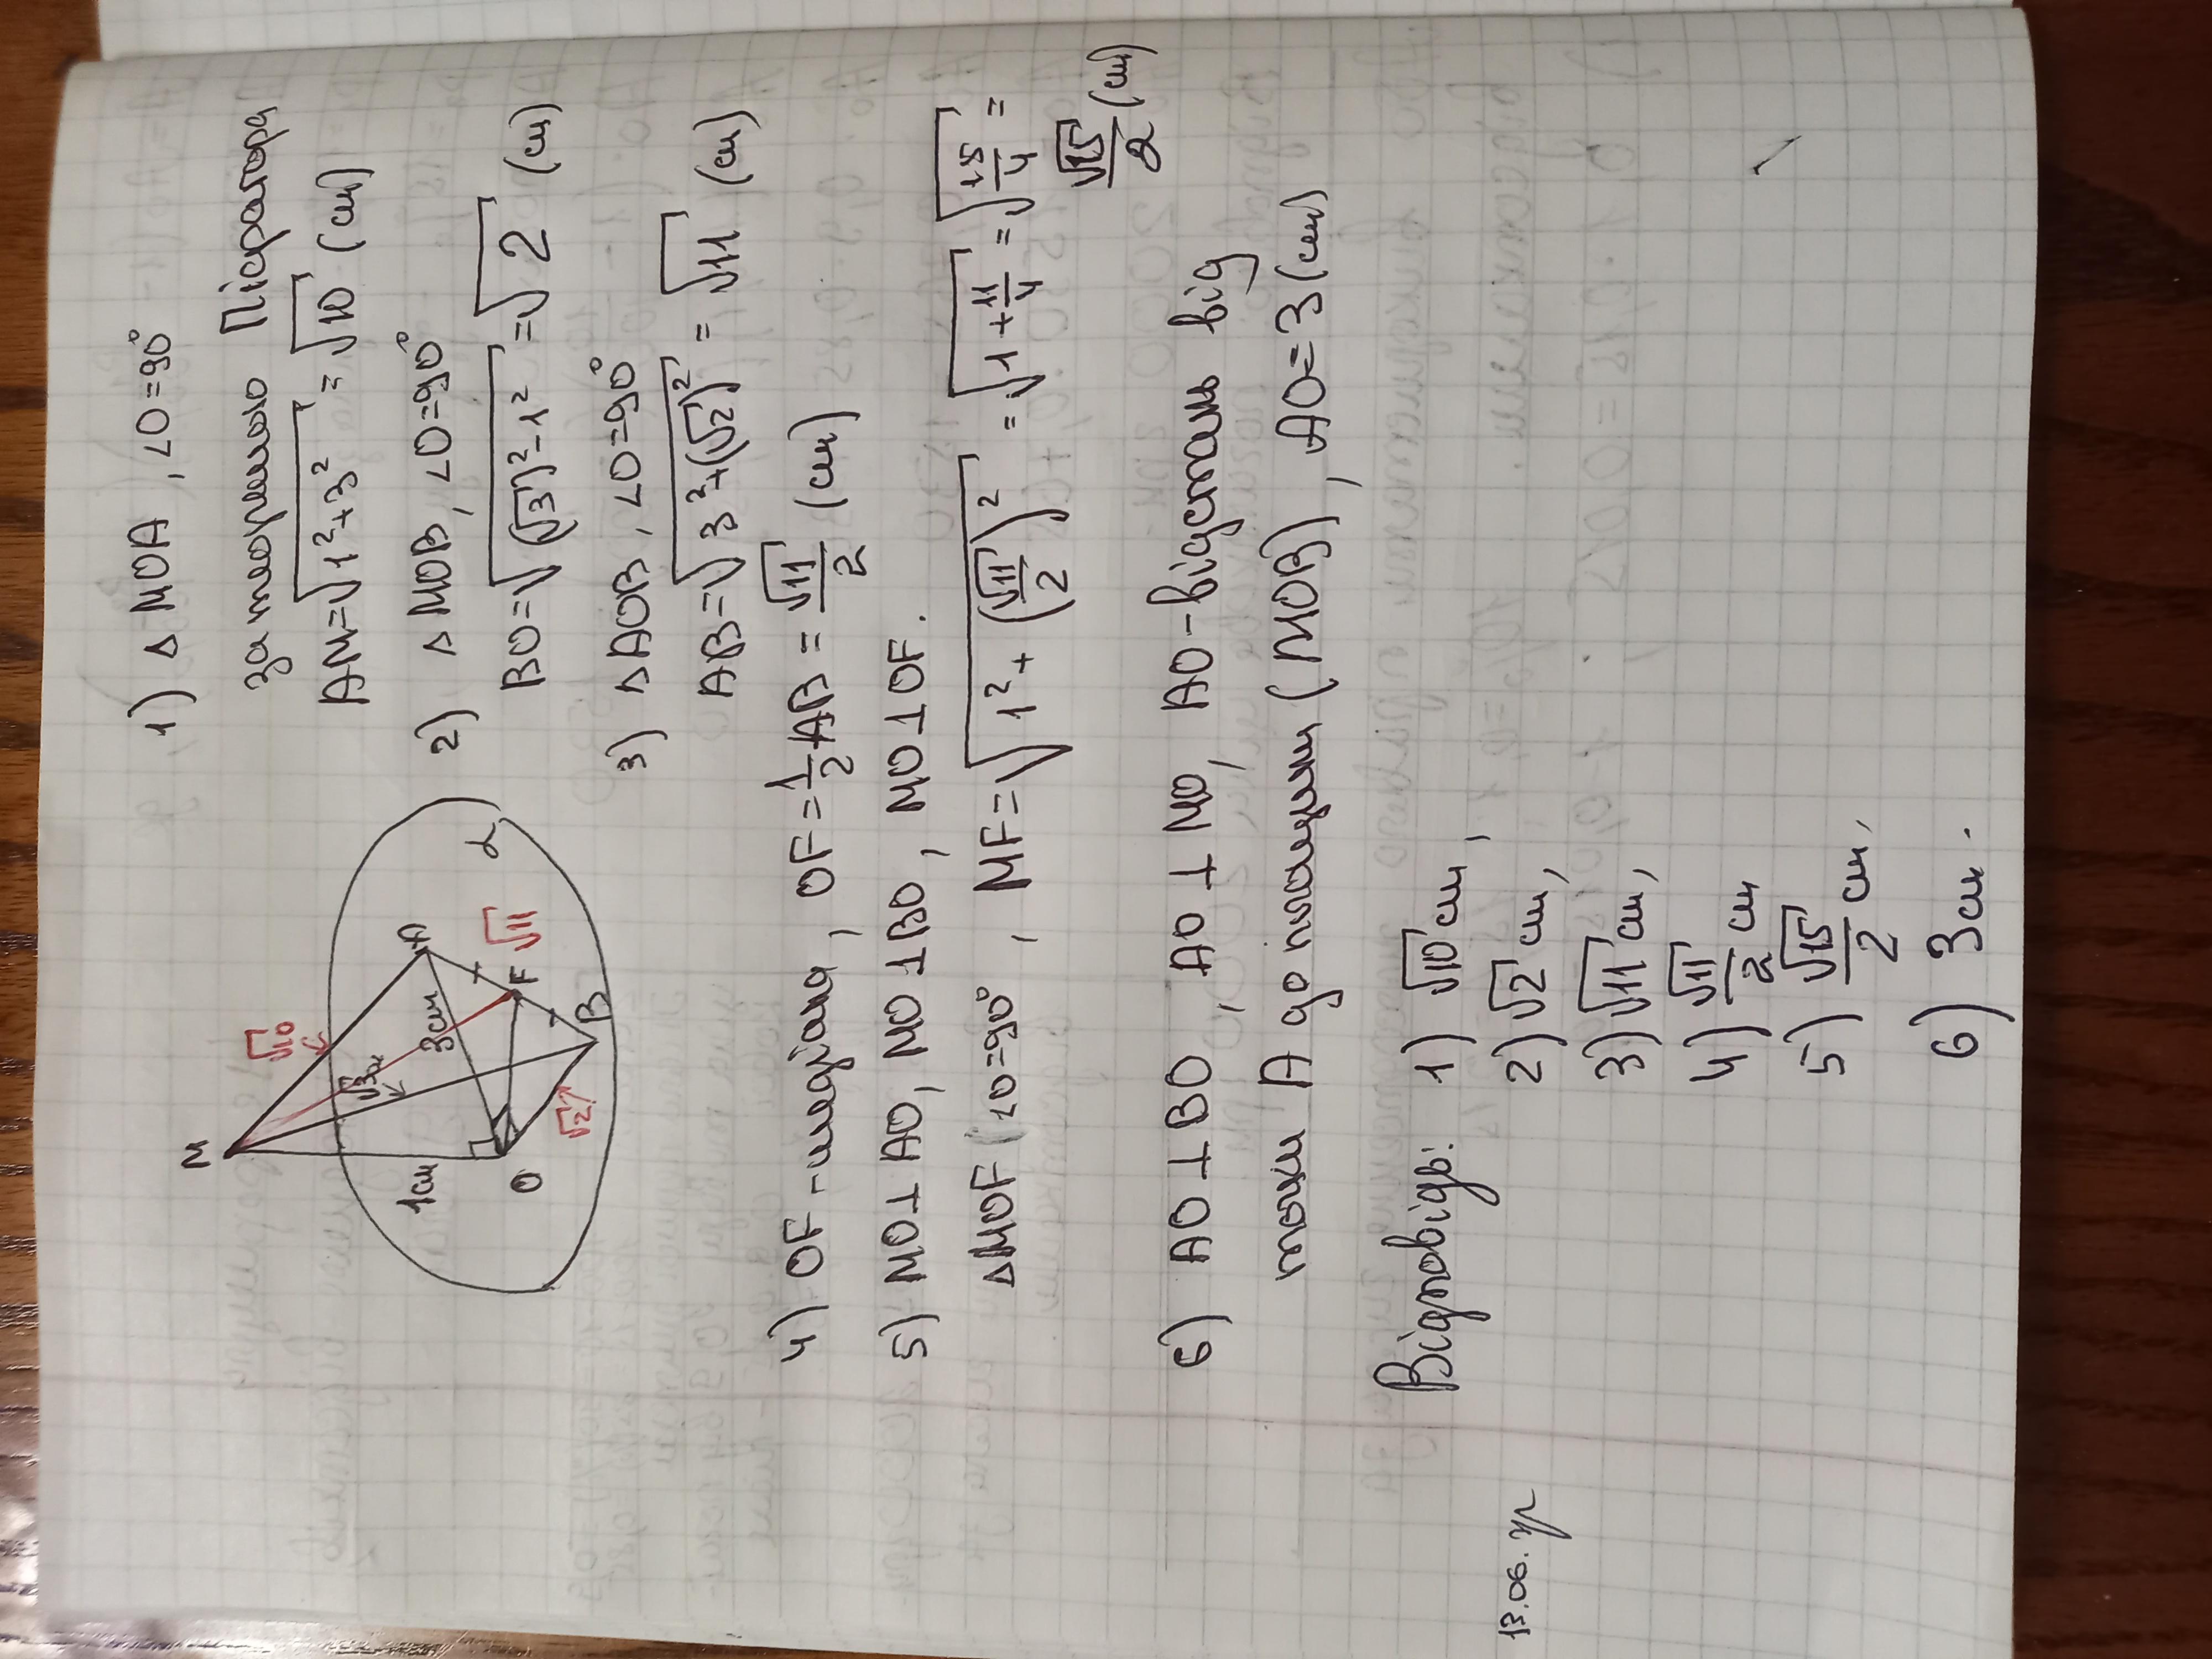 M
√10
1см
√3см
3см
A
α
√11
F
O
√2
B
1) △ MOA, ∠O=90°
за теоремою Піфагора
AM=√1²+3² = √10 (см)
2) △ MOB, ∠O=90°
BO=√(√3)²-1² = √2 (см)
3) △ AOB, ∠O=90°
AB=√3²+(√2)² = √11 (см)
4) OF-медіана, OF=1/2AB = √11/2 (см)
5) MO⊥AO, MO⊥BO, MO⊥OF.
△MOF (∠O=90°, MF=√1²+(√11/2)² = √1+11/4 = √15/4 =
√15/2 (см)
6) AO⊥BO, AO⊥MO, AO-відстань від
точки A до площини (MOB), AO=3(см)
Відповідь: 1) √10 см,
2) √2 см,
3) √11 см,
4) √11/2 см
5) √15/2 см,
6) 3см.
13.06.